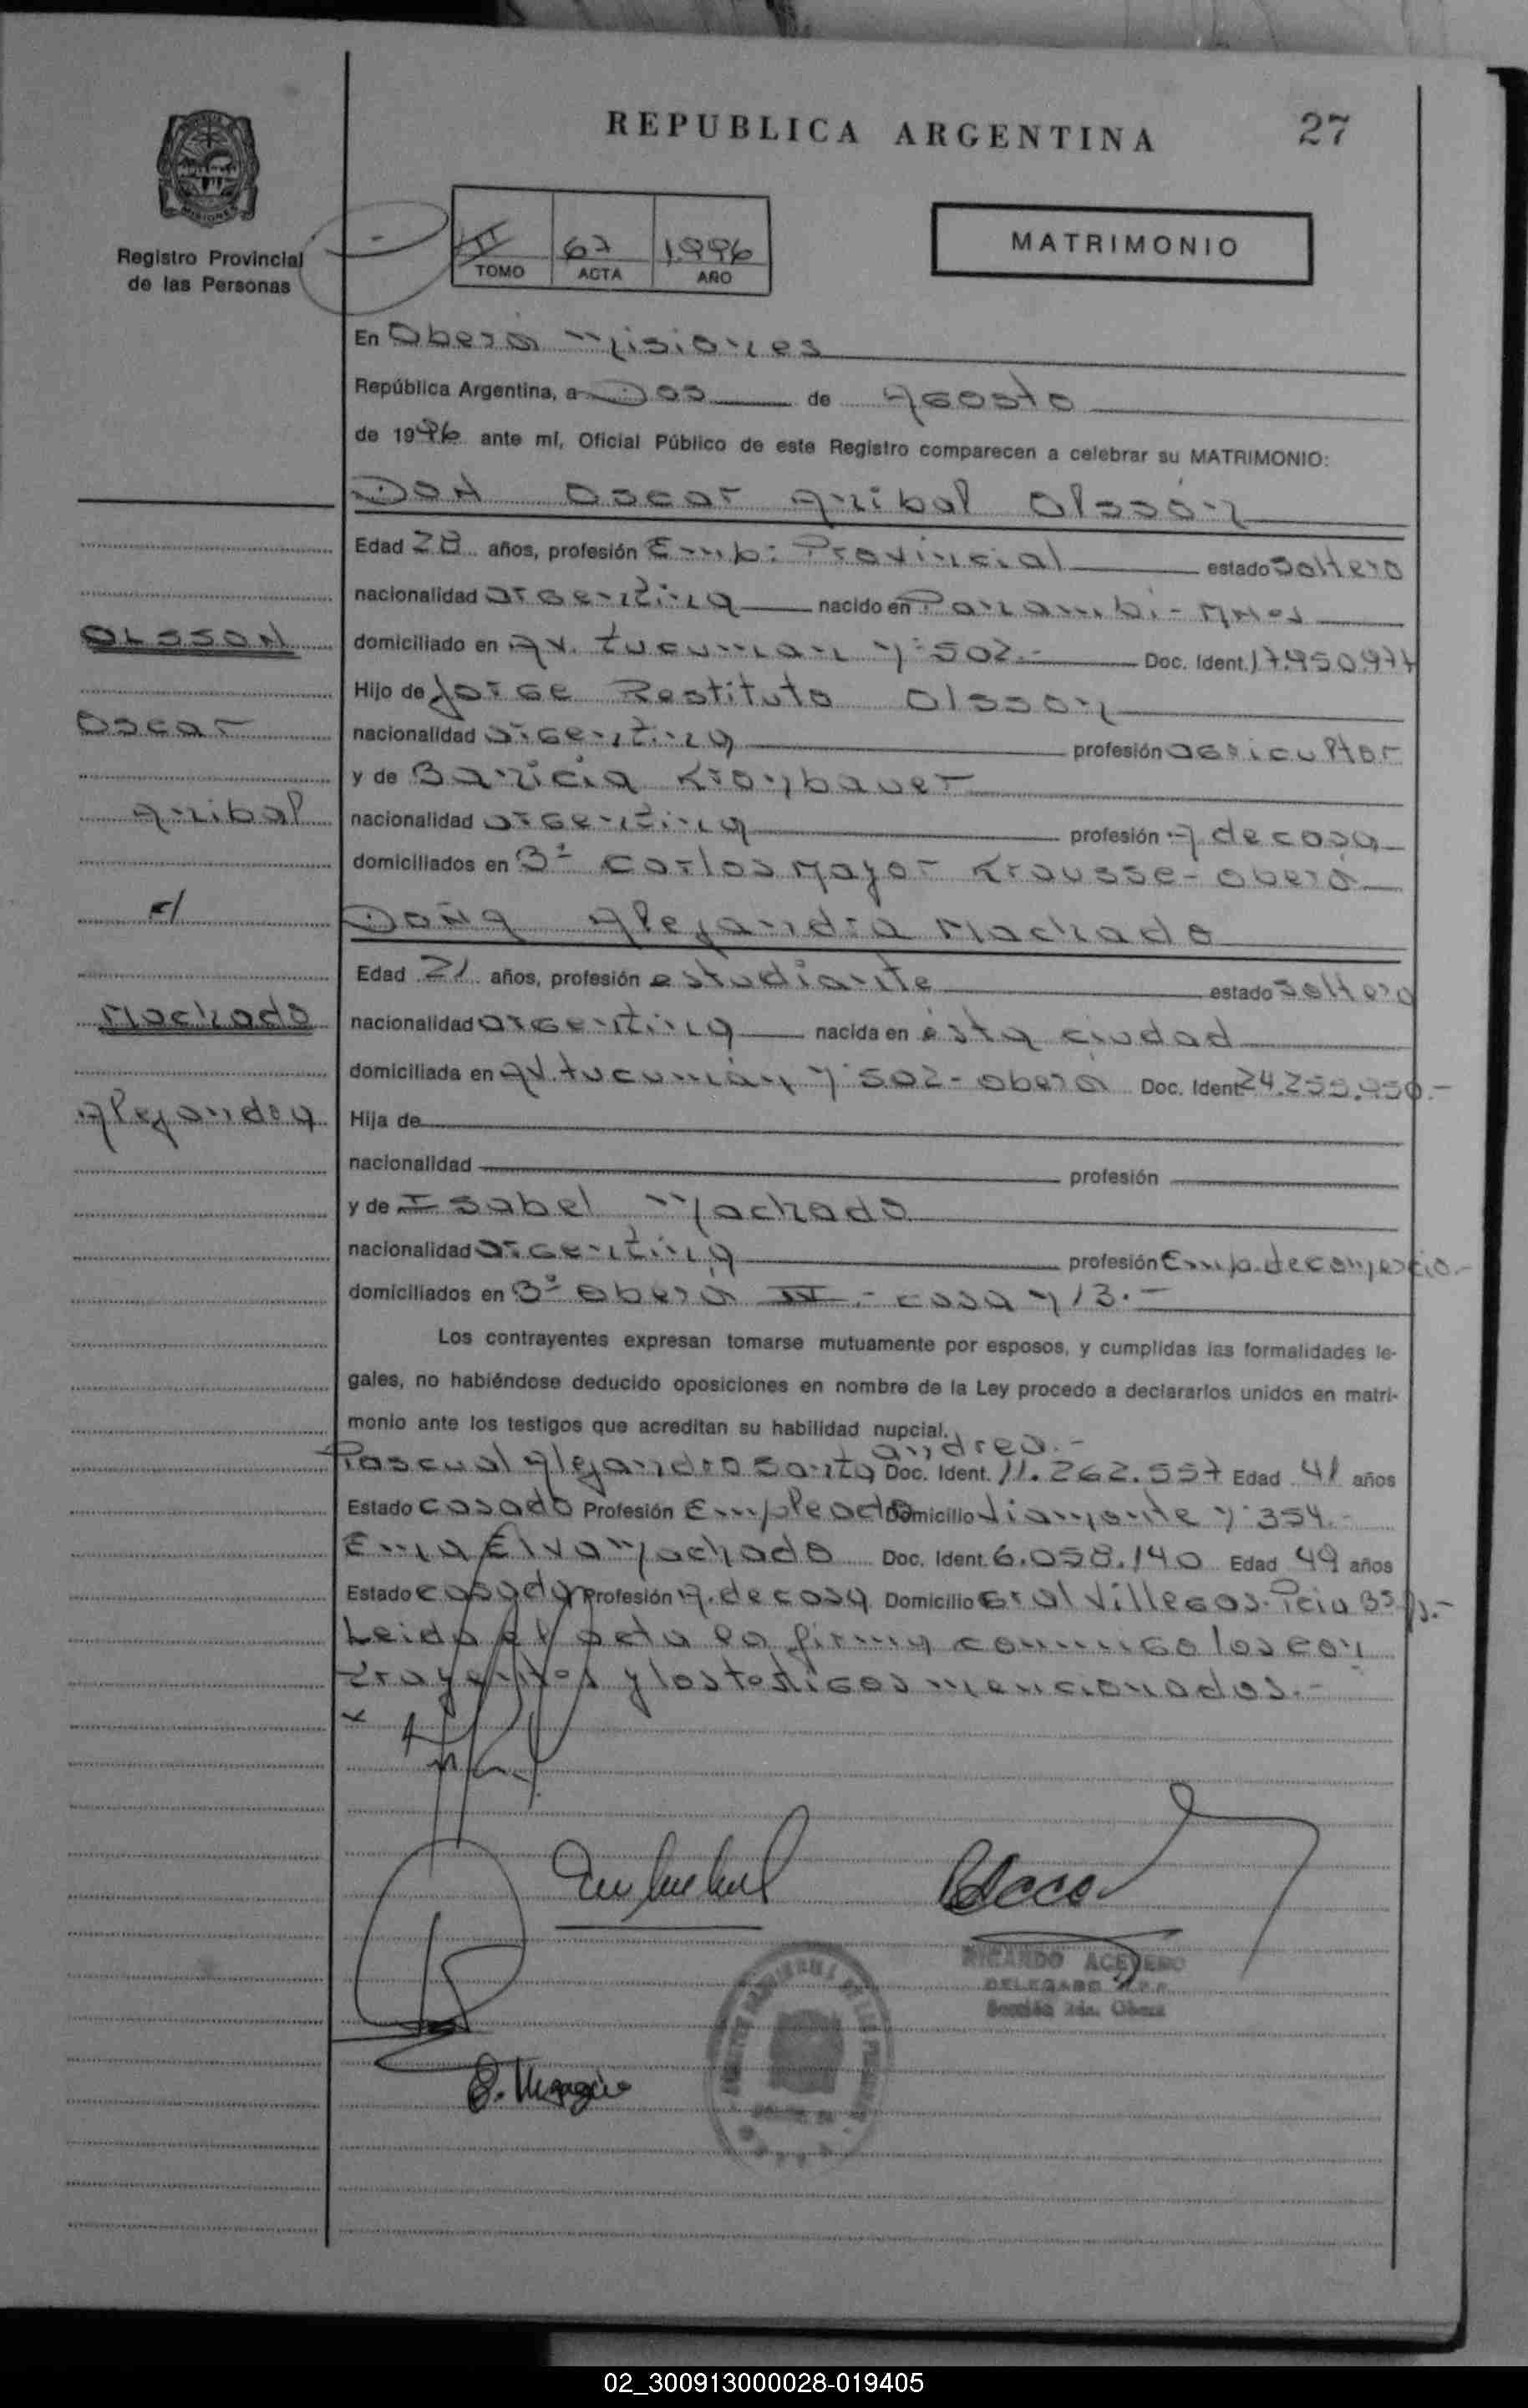 REPUBLICA ARGENTINA
27
Registro Provincial
de las Personas
67 1996
TOMO ACTA AÑO
MATRIMONIO
En Oberá Misiones
República Argentina, a Dos de Agosto
de 1996 ante mí, Oficial Público de este Registro comparecen a celebrar su MATRIMONIO:
DON Oscar Anibal Olssón
Edad 28 años, profesión Emp: Provincial estado soltero
nacionalidad argentina nacido en Panambi - Mnes
OLSSON
domiciliado en Av. tucuman Nº 502.- Doc. Ident. 17.950.974
Hijo de Jorge Restituto Olsson
Oscar
nacionalidad argentina profesión agricultor
y de Kronbauer
Anibal
nacionalidad argentina profesión A de casa
domiciliados en Bº Carlos Mayor Krausse - Oberá
c/
DOÑA Alejandra Machado
Edad 21 años, profesión estudiante estado soltera
Machado
nacionalidad argentina nacida en ésta ciudad
domiciliada en Av. tucumán Nº 502 - Oberá Doc. Ident. 24.255.950.-
Alejandra
Hija de
nacionalidad profesión
y de Isabel Machado
nacionalidad argentina profesión Emp. de comercio.-
domiciliados en Bº Oberá - casa Nº 13.-
Los contrayentes expresan tomarse mutuamente por esposos, y cumplidas las formalidades le-
gales, no habiéndose deducido oposiciones en nombre de la Ley procedo a declararlos unidos en matri-
monio ante los testigos que acreditan su habilidad nupcial.
andrea.-
Pascual Alejandro Santa Doc. Ident. 11.262.557 Edad 41 años
Estado casado Profesión Empleado Domicilio Diamante Nº 354.-
Ema Elva Machado Doc. Ident. 6.058.140 Edad 49 años
Estado casada Profesión A. de casa Domicilio Gral Villegas. Pcia Bs As.-
Leida el acta la firma conmigo los con
trayentes y los testigos mencionados.-
RICARDO ACEVEDO
DELEGADO R.P.P.
Sección 2da. Oberá
02_300913000028-019405